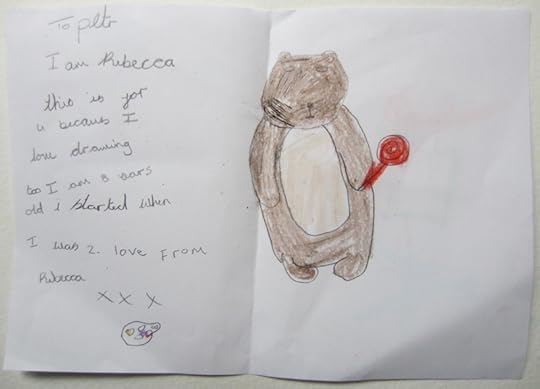 To peter
I am Rebecca
this is for
u becaus I
love drawing
too I am 8 ears
old i started when
I was 2. love From
Rebecca
X X X